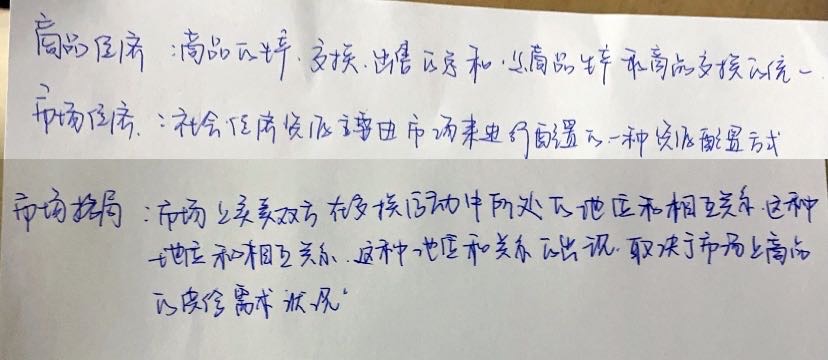 商品经济:商品的生产、交换、出售的总和.是商品生产和商品交换的统一
市场经济.:社会经济资源主要由市场来进行配置的一种资源配置方式
市场格局:市场上买卖双方在交换活动中所处的地位和相互关系.这种
地位和相互关系.这种地位和关系的出现.取决于市场上商品
的供给需求状况.